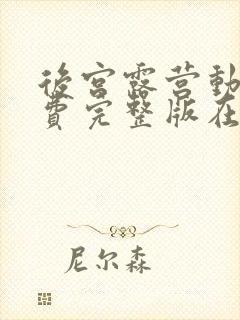 後宫露营動
費完整版在
尼尔森